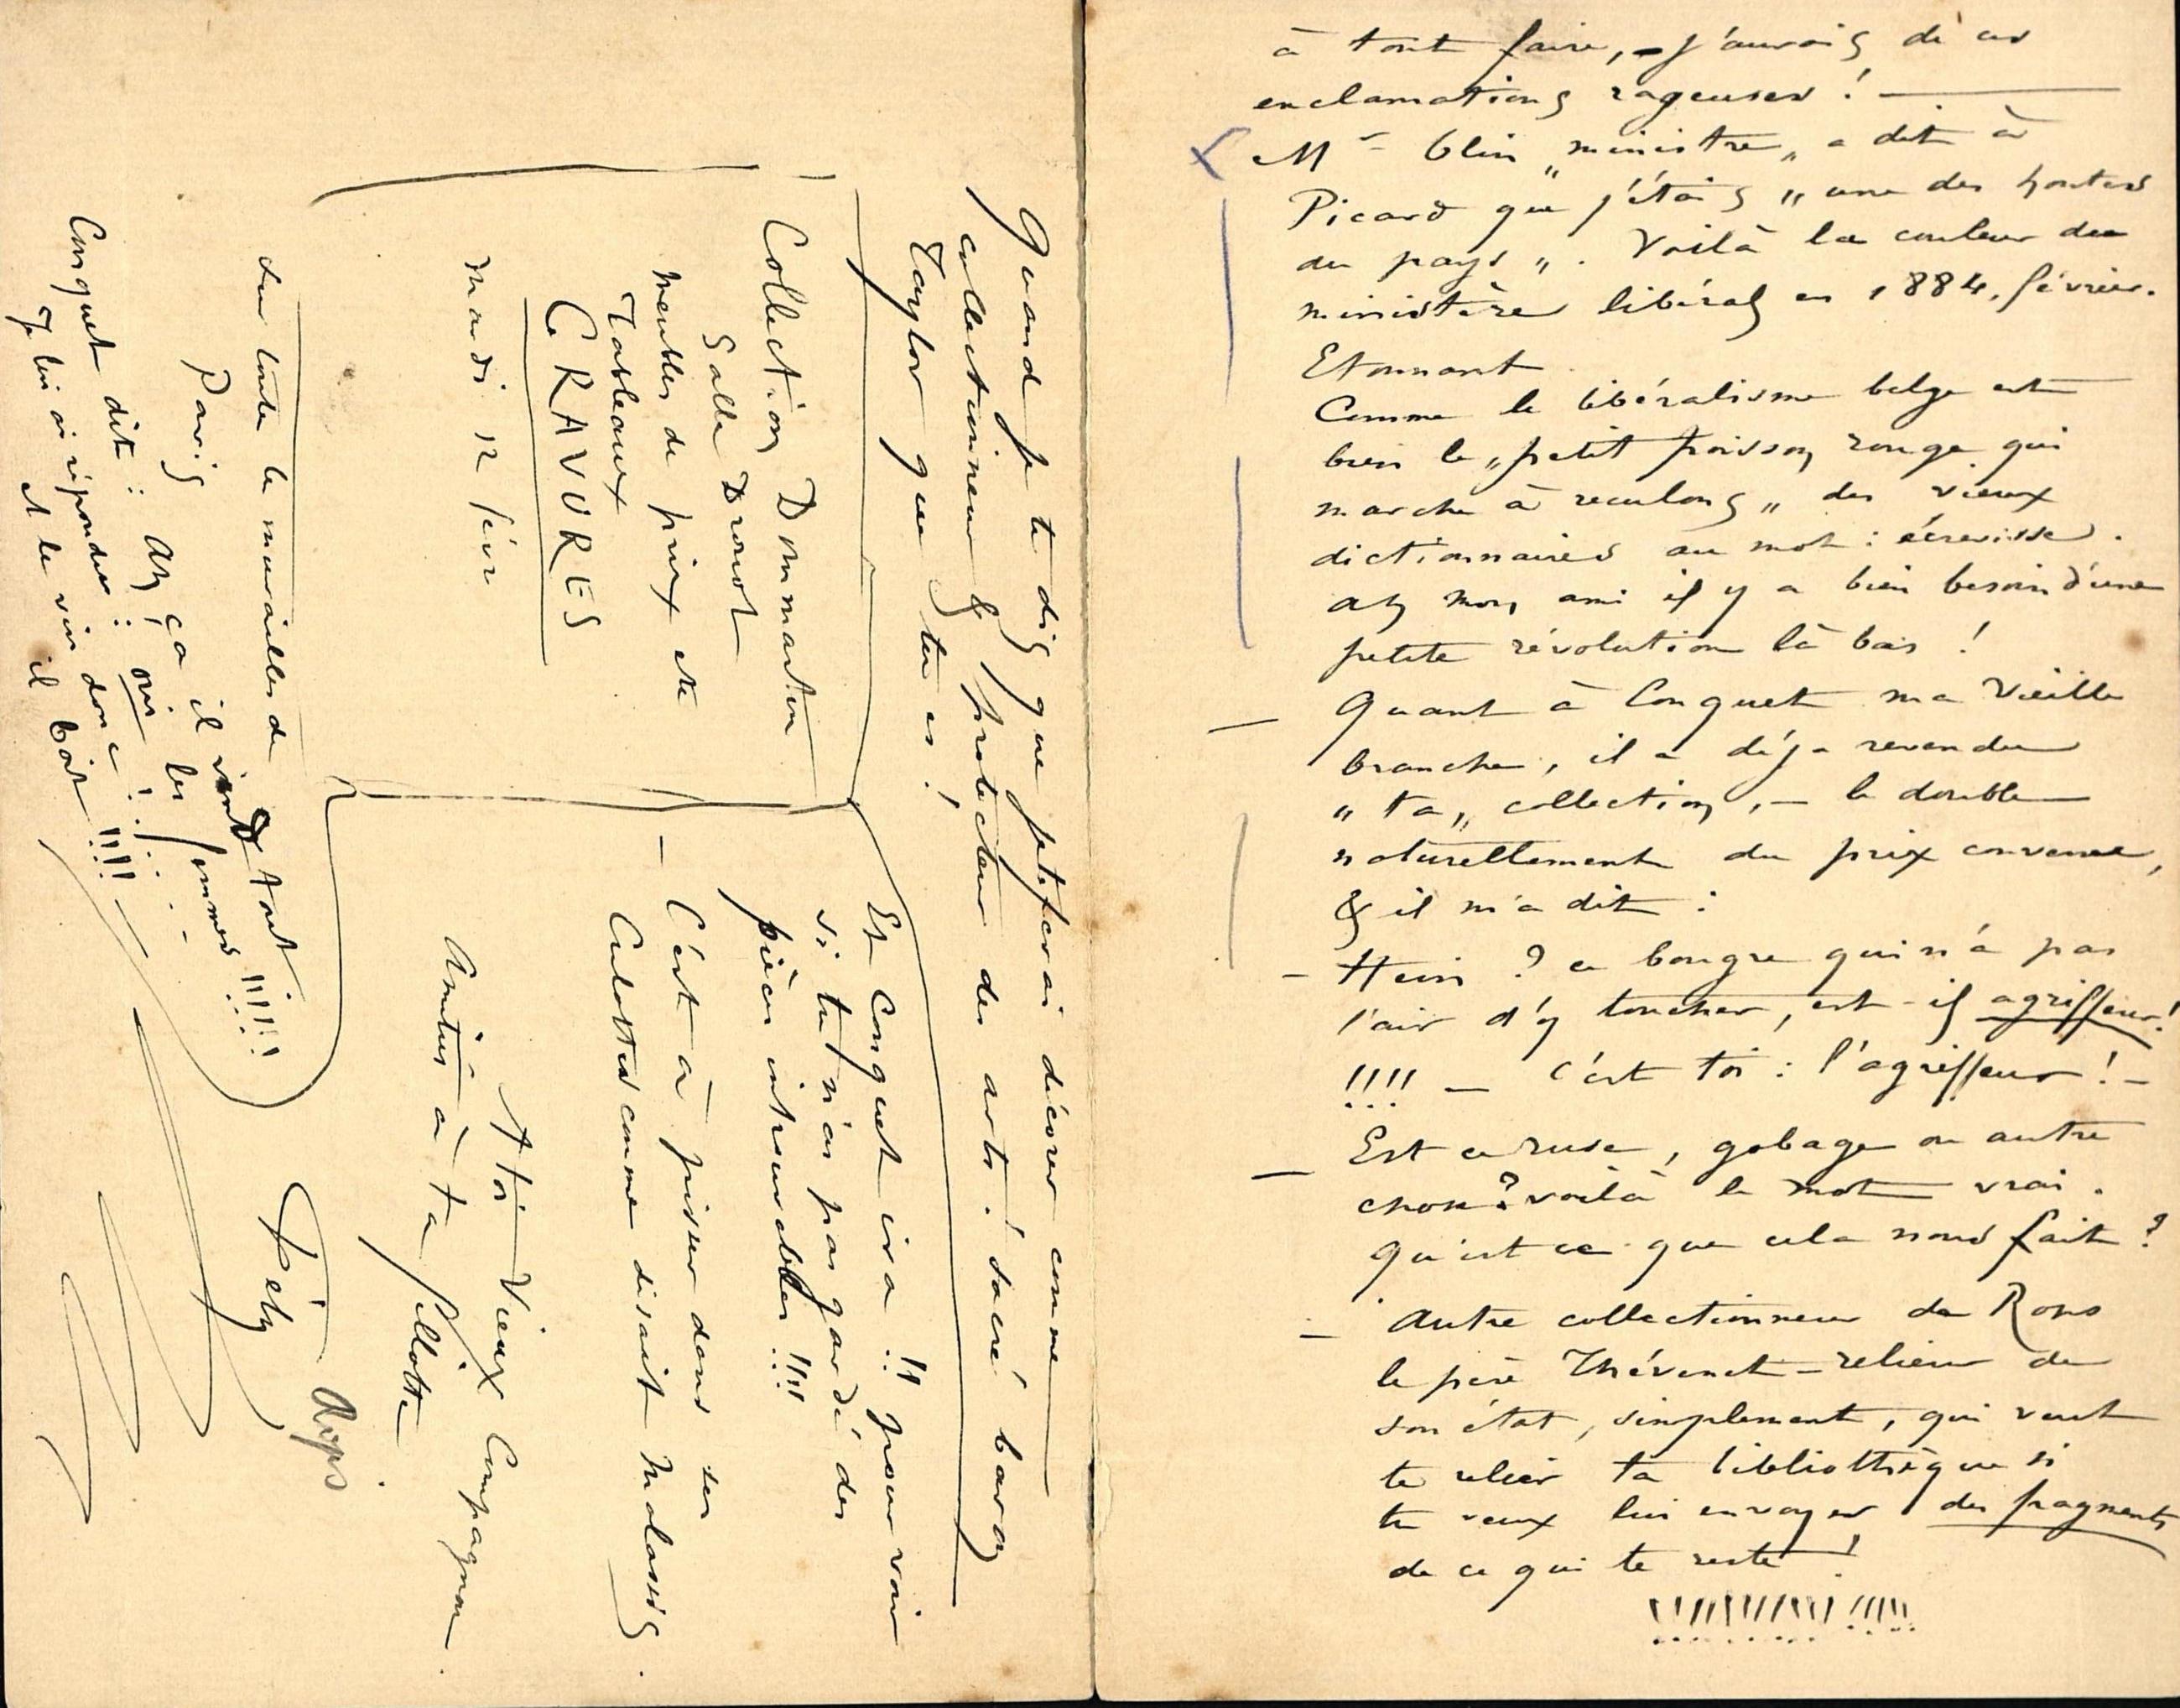 à tout faire, – j'aurais de ces
exclamations rageuses ! —
Mr Olin „ministre„ a dit à
Picard que j'étais „une des hontes
du pays„. Voilà la couleur des
ministères libéral en 1884, février.
Etonnant
Comme le libéralisme belge est
bien le „petit poisson rouge qui
marche à reculons„ des vieux
dictionnaires au mot : écrevisse.
Ah mon ami il y a bien besoin d'une
petite révolution là bas !
— Quant à Conquet ma Vieille
branche, il a déja revendu
„ta„ collection, – le double
naturellement du prix convenu,
& il m'a dit :
– Hein ? ce bougre qui n'a pas
l'air d'y toucher, est-il agriffeur !
!!!! – C'est toi : l'agriffeur ! –
— Est ce ruse, gobage ou autre
chose ? voilà le mot vrai.
Qu'est ce que cela nous fait ?
– Autre collectionneur de Rops
le père Thévenet – relieur de
son état, simplement, qui veut
te relier ta bibliothèque si
tu veux lui envoyer des fragments
de ce qui te reste !
!!!!!!!!!! !!!!!
Quand je te dis que je te ferai décorer comme
collectionneur & protecteur des arts ! sacré baron
Taylor que tu es !
Collection Dommartin
Salle Drouot
Meubles de prix etc
Tableaux
GRAVURES
Mardi 12 févr
Et Conquet ira !! pour voir
si tu n'as pas gardé des
pièces introuvables !!!!
– C'est à pisser dans ses
Culottes comme disait Malassis.
A toi Vieux Compagnon.
Amitiés à ta fillotte
Fély Rops
sur toutes les murailles de
Paris
Conquet dit : Ah ! ça il vend tout !!!!!
Je lui ai répondu : oui les femmes !!!!!
et le vin donc ! . . . .
il boit !!!! –